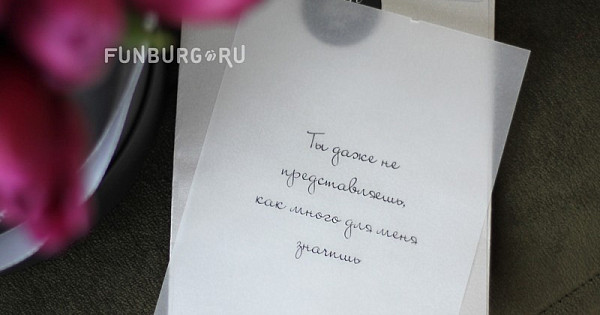 FUNBURG.RU
Ты даже не
представляешь,
как много для меня
значишь